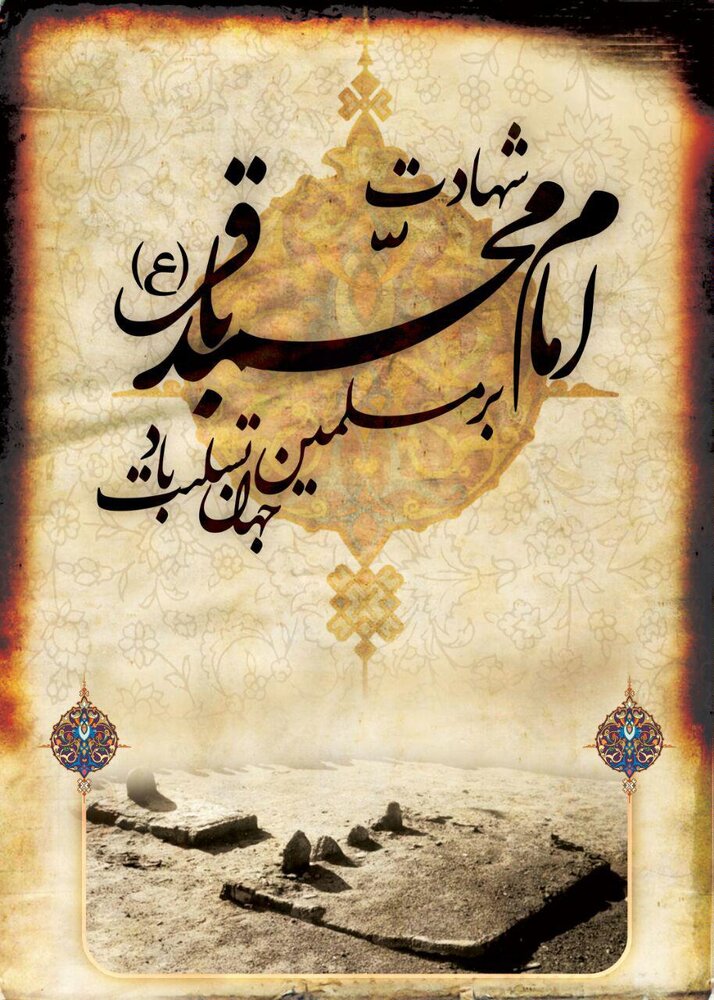 شهادت
امام محمّد باقر (ع)
بر مسلمین
جهان تسلیت باد